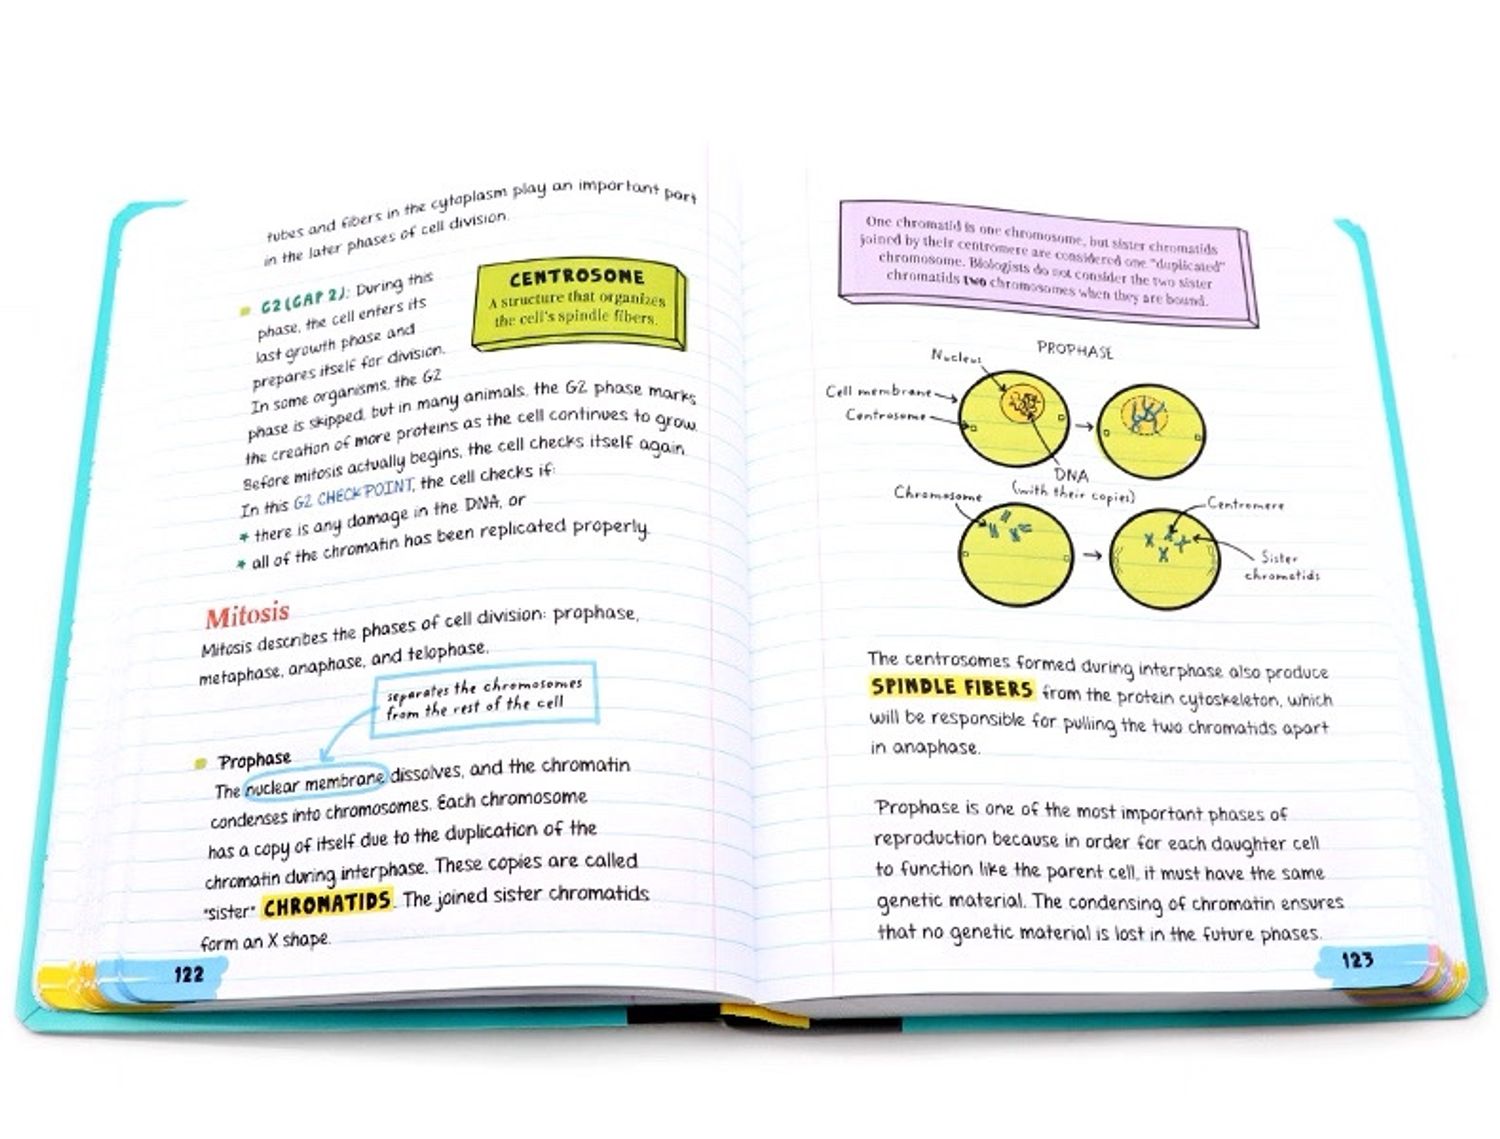 tubes and fibers in the cytoplasm play an important part
in the later phases of cell division.
G2 (GAP 2): During this
phase, the cell enters its
last growth phase and
prepares itself for division.
In some organisms, the G2
phase is skipped, but in many animals, the G2 phase marks
the creation of more proteins as the cell continues to grow.
Before mitosis actually begins, the cell checks itself again.
In this G2 CHECKPOINT, the cell checks if:
* there is any damage in the DNA, or
* all of the chromatin has been replicated properly.
CENTROSOME
A structure that organizes
the cell's spindle fibers.
Mitosis
Mitosis describes the phases of cell division: prophase,
metaphase, anaphase, and telophase.
separates the chromosomes
from the rest of the cell
Prophase
The nuclear membrane dissolves, and the chromatin
condenses into chromosomes. Each chromosome
has a copy of itself due to the duplication of the
chromatin during interphase. These copies are called
"sister" CHROMATIDS. The joined sister chromatids
form an X shape.
122
One chromatid is one chromosome, but sister chromatids
joined by their centromere are considered one "duplicated"
chromosome. Biologists do not consider the two sister
chromatids two chromosomes when they are bound.
PROPHASE
Nucleus
Cell membrane
Centrosome
DNA
(with their copies)
Chromosome
Centromere
Sister
chromatids
The centrosomes formed during interphase also produce
SPINDLE FIBERS from the protein cytoskeleton, which
will be responsible for pulling the two chromatids apart
in anaphase.
Prophase is one of the most important phases of
reproduction because in order for each daughter cell
to function like the parent cell, it must have the same
genetic material. The condensing of chromatin ensures
that no genetic material is lost in the future phases.
123